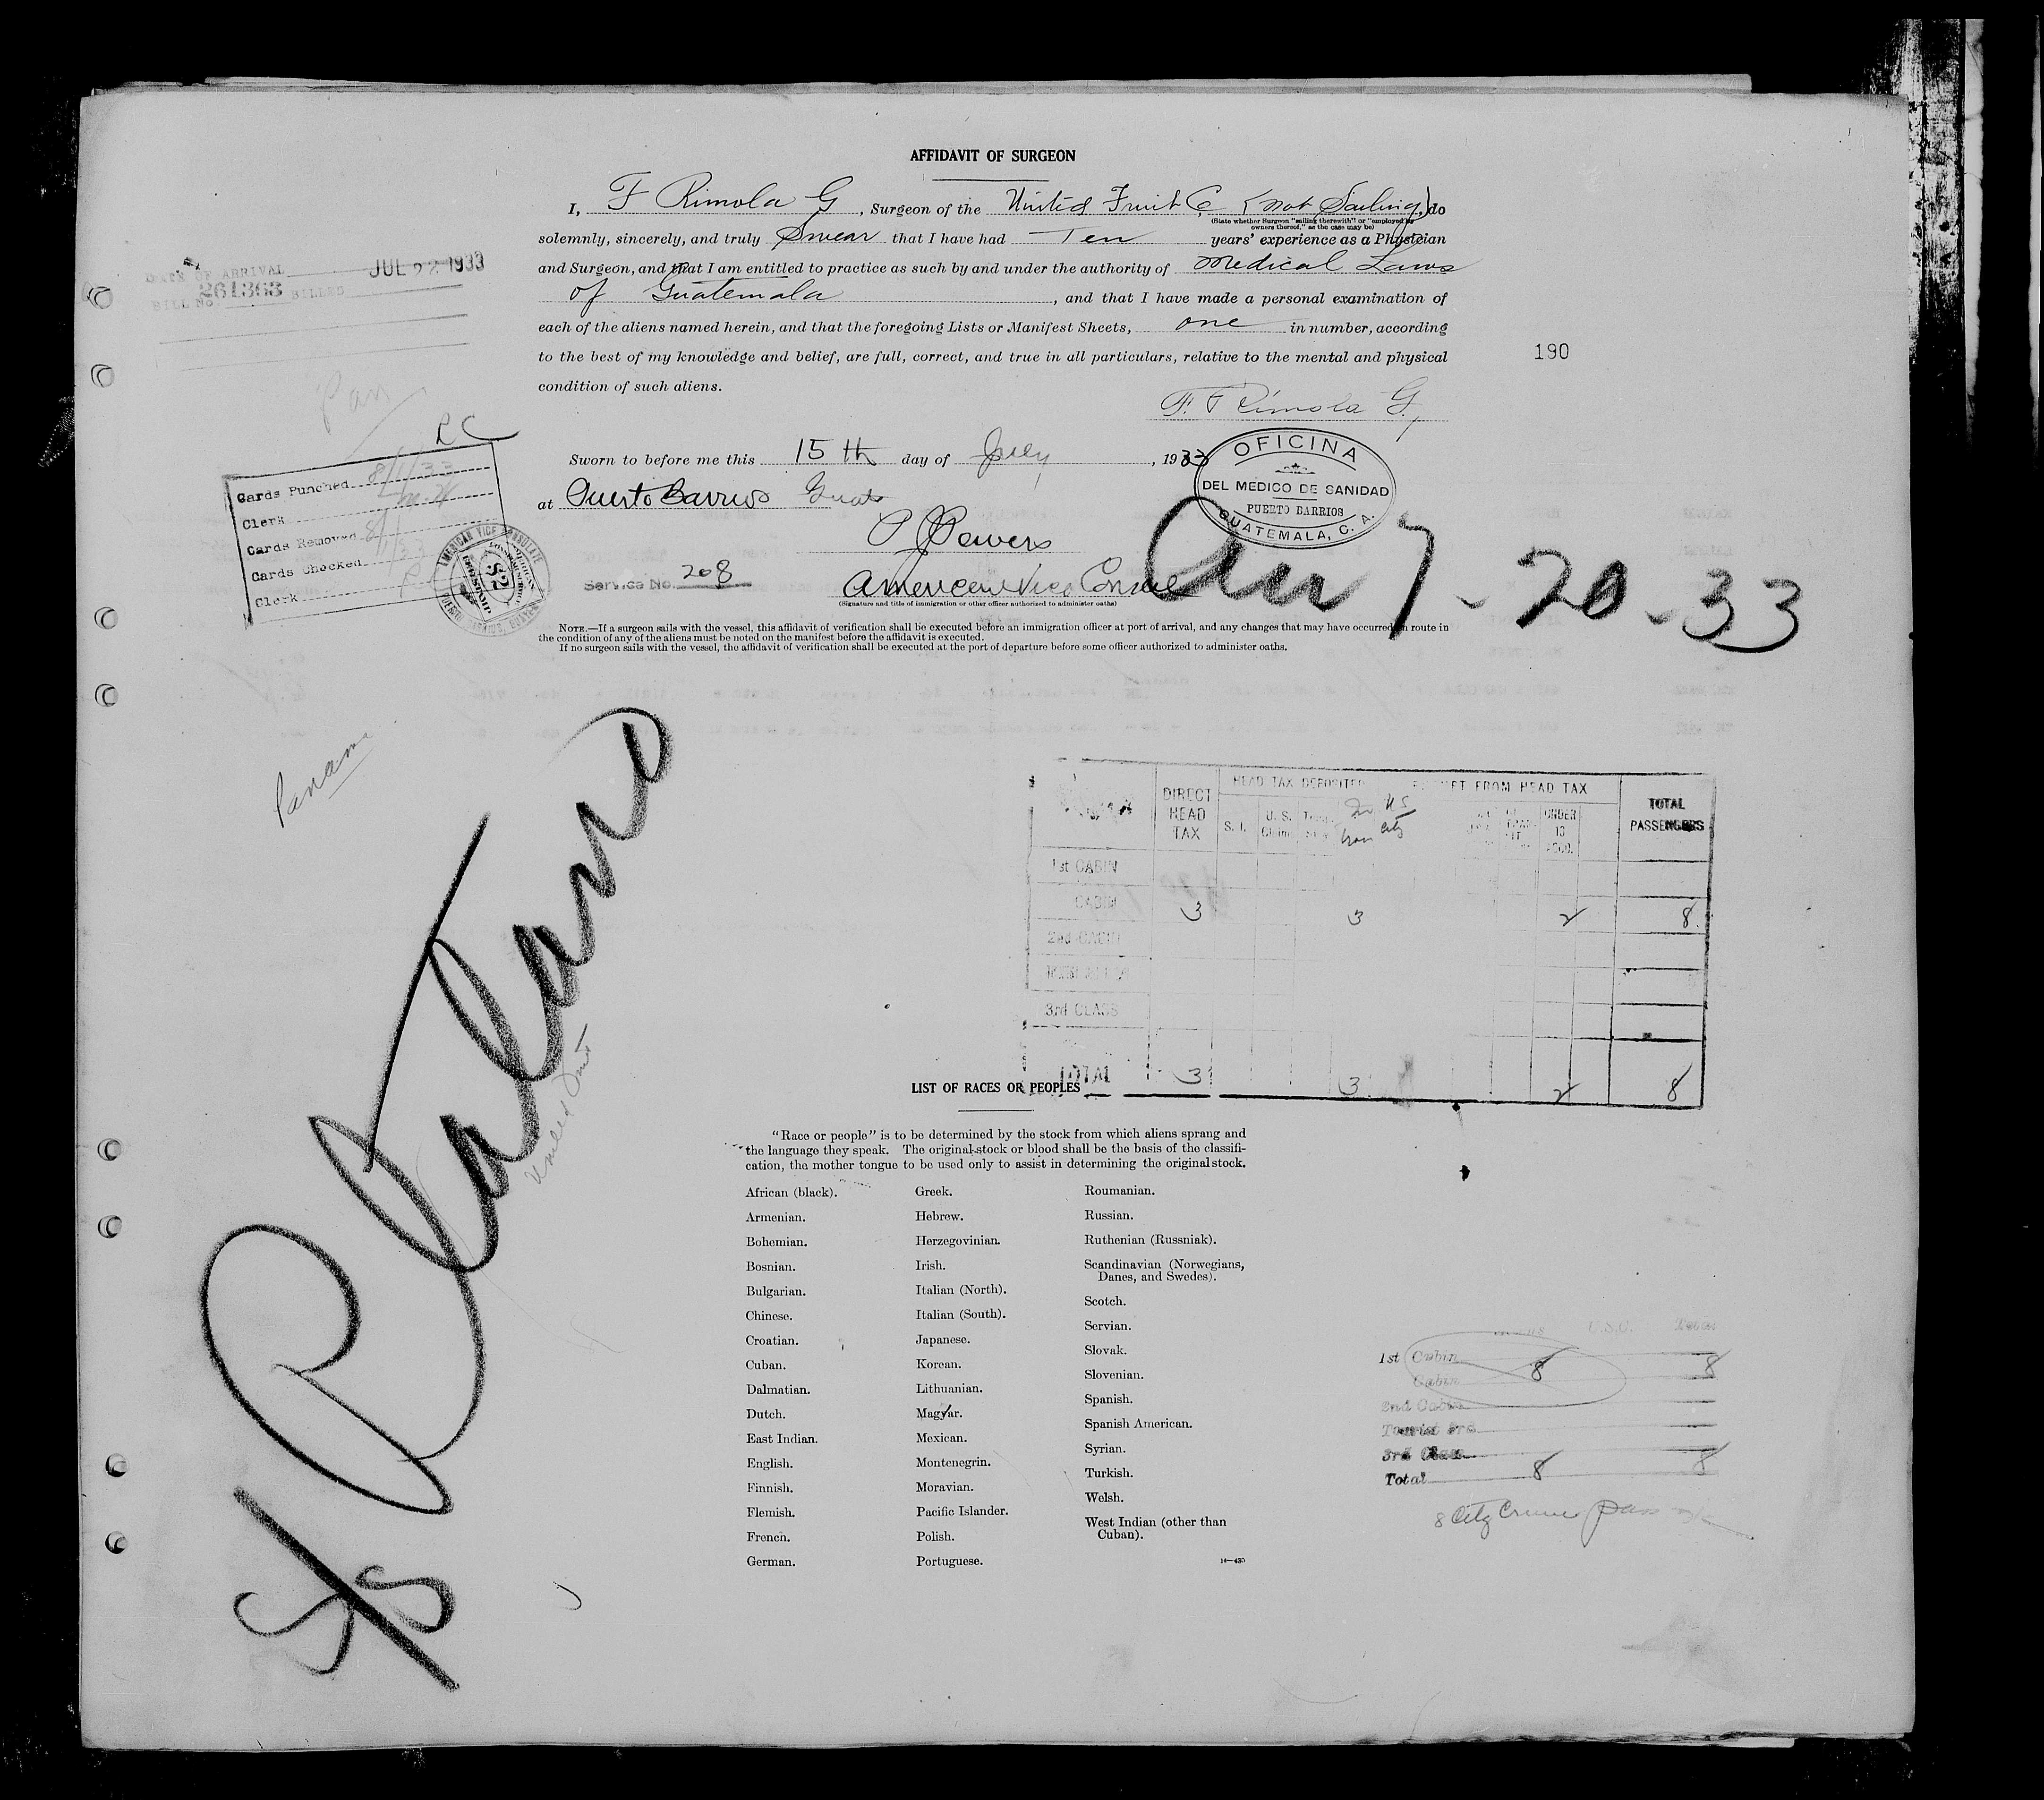 AFFIDAVIT OF SURGEON
I, F Rimola G , Surgeon of the United Fruit Co (not Sailing) do
(State whether Surgeon "sailing therewith" or "employed by owners thereof," as the case may be)
solemnly, sincerely, and truly Swear that I have had Ten years' experience as a Physician
and Surgeon, and that I am entitled to practice as such by and under the authority of Medical Laws
of Guatemala , and that I have made a personal examination of
each of the aliens named herein, and that the foregoing Lists or Manifest Sheets, one in number, according
to the best of my knowledge and belief, are full, correct, and true in all particulars, relative to the mental and physical
condition of such aliens.
190
F. Rimola G.
DATE OF ARRIVAL JUL 22 1933
BILL No. 261363 BILLED
Pan
LC
Cards Punched 8/1/33
Clerk
Cards Removed 8/1
Cards Checked
Clerk
AMERICAN VICE CONSULATE
Sworn to before me this 15th day of July , 1933
at Puerto Barrios Guat
OFICINA
DEL MEDICO DE SANIDAD
PUERTO BARRIOS
GUATEMALA, C. A.
P J Powers
Service No. 208
American Vice Consul
(Signature and title of immigration or other officer authorized to administer oaths)
Arr 7-20-33
NOTE.—If a surgeon sails with the vessel, this affidavit of verification shall be executed before an immigration officer at port of arrival, and any changes that may have occurred in route in
the condition of any of the aliens must be noted on the manifest before the affidavit is executed.
If no surgeon sails with the vessel, the affidavit of verification shall be executed at the port of departure before some officer authorized to administer oaths.
Panam
S/S Platano
United Fruit
DIRECT HEAD TAX
HEAD TAX DEPOSITED
FROM HEAD TAX
TOTAL PASSENGERS
S. I.
U. S.
UNDER 16
1st CABIN
CABIN 3 3 2 8
2nd CABIN
3rd CLASS
TOTAL 3 3 2 8
LIST OF RACES OR PEOPLES
"Race or people" is to be determined by the stock from which aliens sprang and
the language they speak. The original stock or blood shall be the basis of the classifi-
cation, the mother tongue to be used only to assist in determining the original stock.
African (black).
Armenian.
Bohemian.
Bosnian.
Bulgarian.
Chinese.
Croatian.
Cuban.
Dalmatian.
Dutch.
East Indian.
English.
Finnish.
Flemish.
French.
German.
Greek.
Hebrew.
Herzegovinian.
Irish.
Italian (North).
Italian (South).
Japanese.
Korean.
Lithuanian.
Magyar.
Mexican.
Montenegrin.
Moravian.
Pacific Islander.
Polish.
Portuguese.
Roumanian.
Russian.
Ruthenian (Russniak).
Scandinavian (Norwegians,
Danes, and Swedes).
Scotch.
Servian.
Slovak.
Slovenian.
Spanish.
Spanish American.
Syrian.
Turkish.
Welsh.
West Indian (other than
Cuban).
U.S.C. Total
1st Cabin 8 8
Cabin
2nd Cabin
Tourist 3rd
3rd Class
Total 8 8